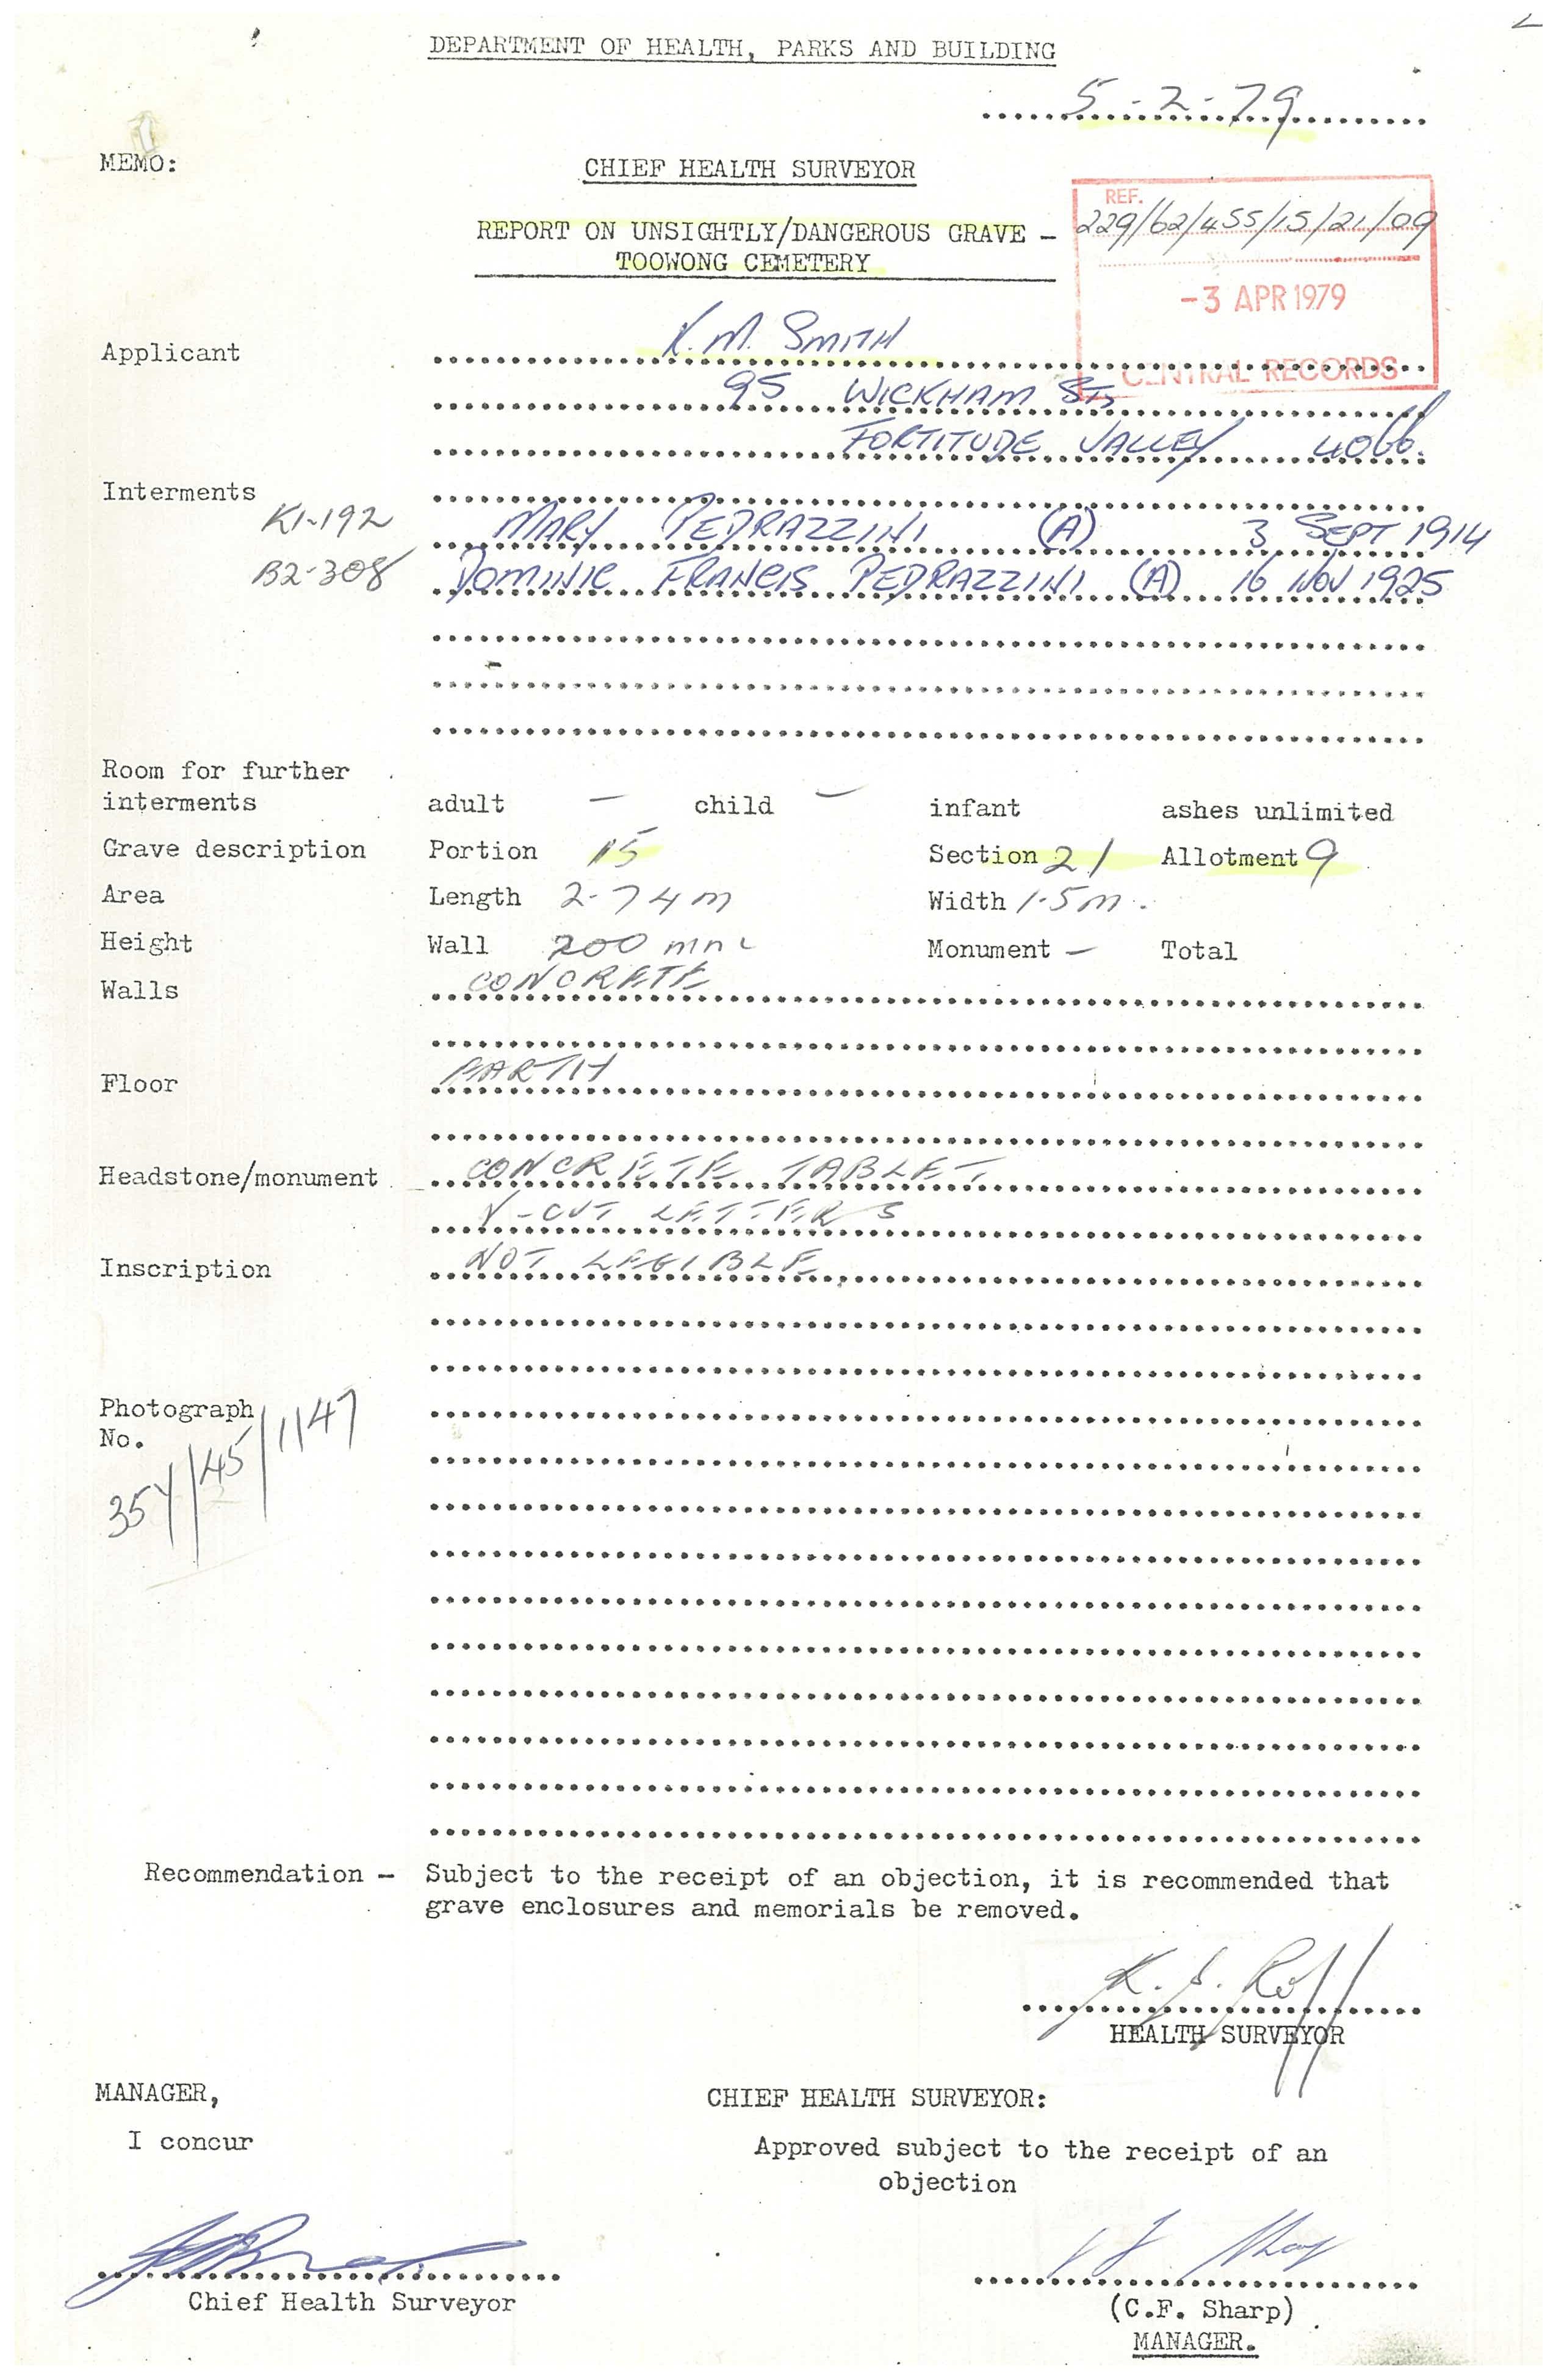 DEPARTMENT OF HEALTH, PARKS AND BUILDING
5-2-79
MEMO:
CHIEF HEALTH SURVEYOR
REPORT ON UNSIGHTLY/DANGEROUS GRAVE -
TOOWONG CEMETERY
REF.
229/62/455/15/21/09
-3 APR 1979
CENTRAL RECORDS
Applicant K. M. SMITH
95 WICKHAM ST,
FORTITUDE VALLEY 4006.
Interments
K1-192 MARY PEDRAZZINI (A) 3 SEPT 1914
B2-308 DOMINIC FRANCIS PEDRAZZINI (A) 16 NOV 1925
Room for further
interments adult — child — infant ashes unlimited
Grave description Portion 15 Section 21 Allotment 9
Area Length 2.74m Width 1.5m.
Height Wall 200 mm Monument — Total
Walls CONCRETE
Floor EARTH
Headstone/monument CONCRETE TABLET
V-CUT LETTERS
Inscription NOT LEGIBLE
Photograph
No.
Recommendation - Subject to the receipt of an objection, it is recommended that
grave enclosures and memorials be removed.
HEALTH SURVEYOR
MANAGER,
I concur
Chief Health Surveyor
CHIEF HEALTH SURVEYOR:
Approved subject to the receipt of an
objection
(C.F. Sharp)
MANAGER.